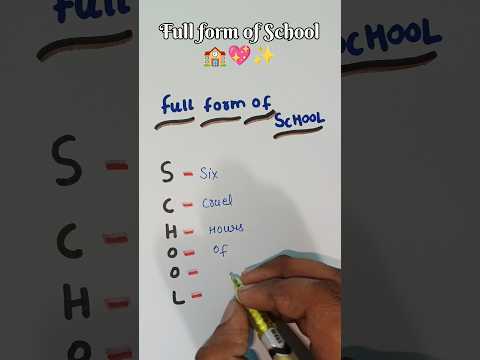 Full form of School
🏫💖✨
Full form of
SCHOOL
S - Six
C - Cruel
H - Hours
O - of
O -
L -